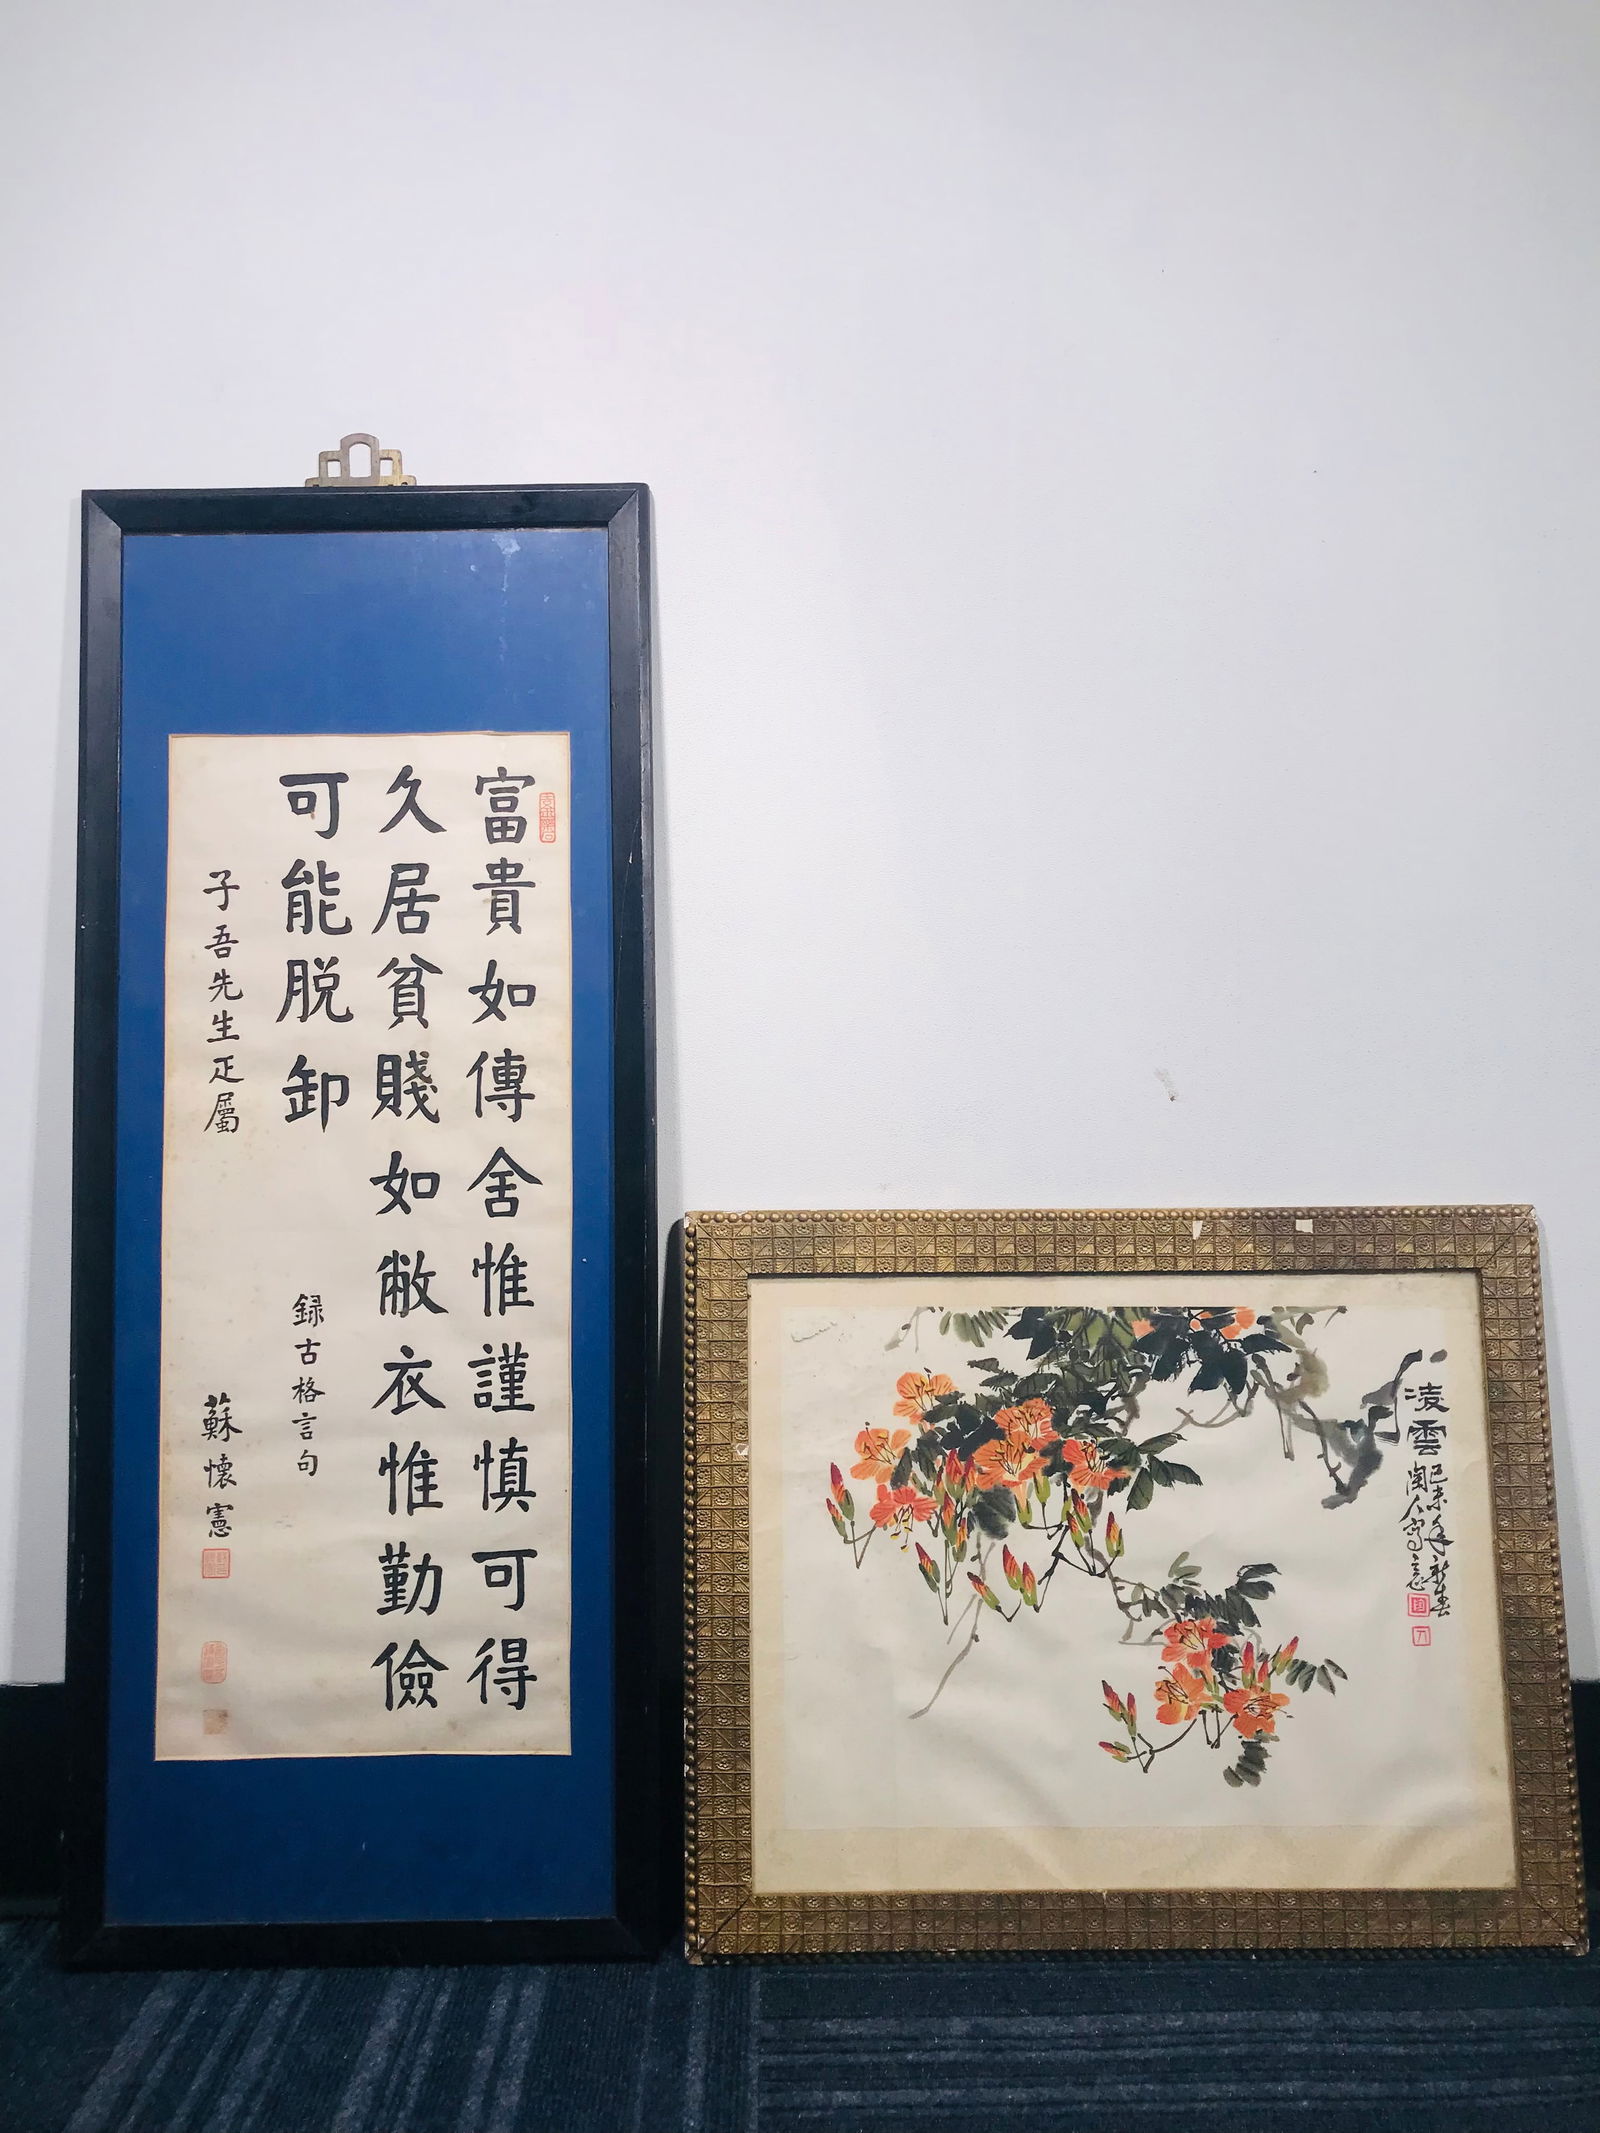 富貴如傳舍惟謹慎可得
久居貧賤如敝衣惟勤儉
可能脱卸
錄古格言句
子吾先生疋屬
蘇懷憲
凌雲
己未年新春
陶人寫意